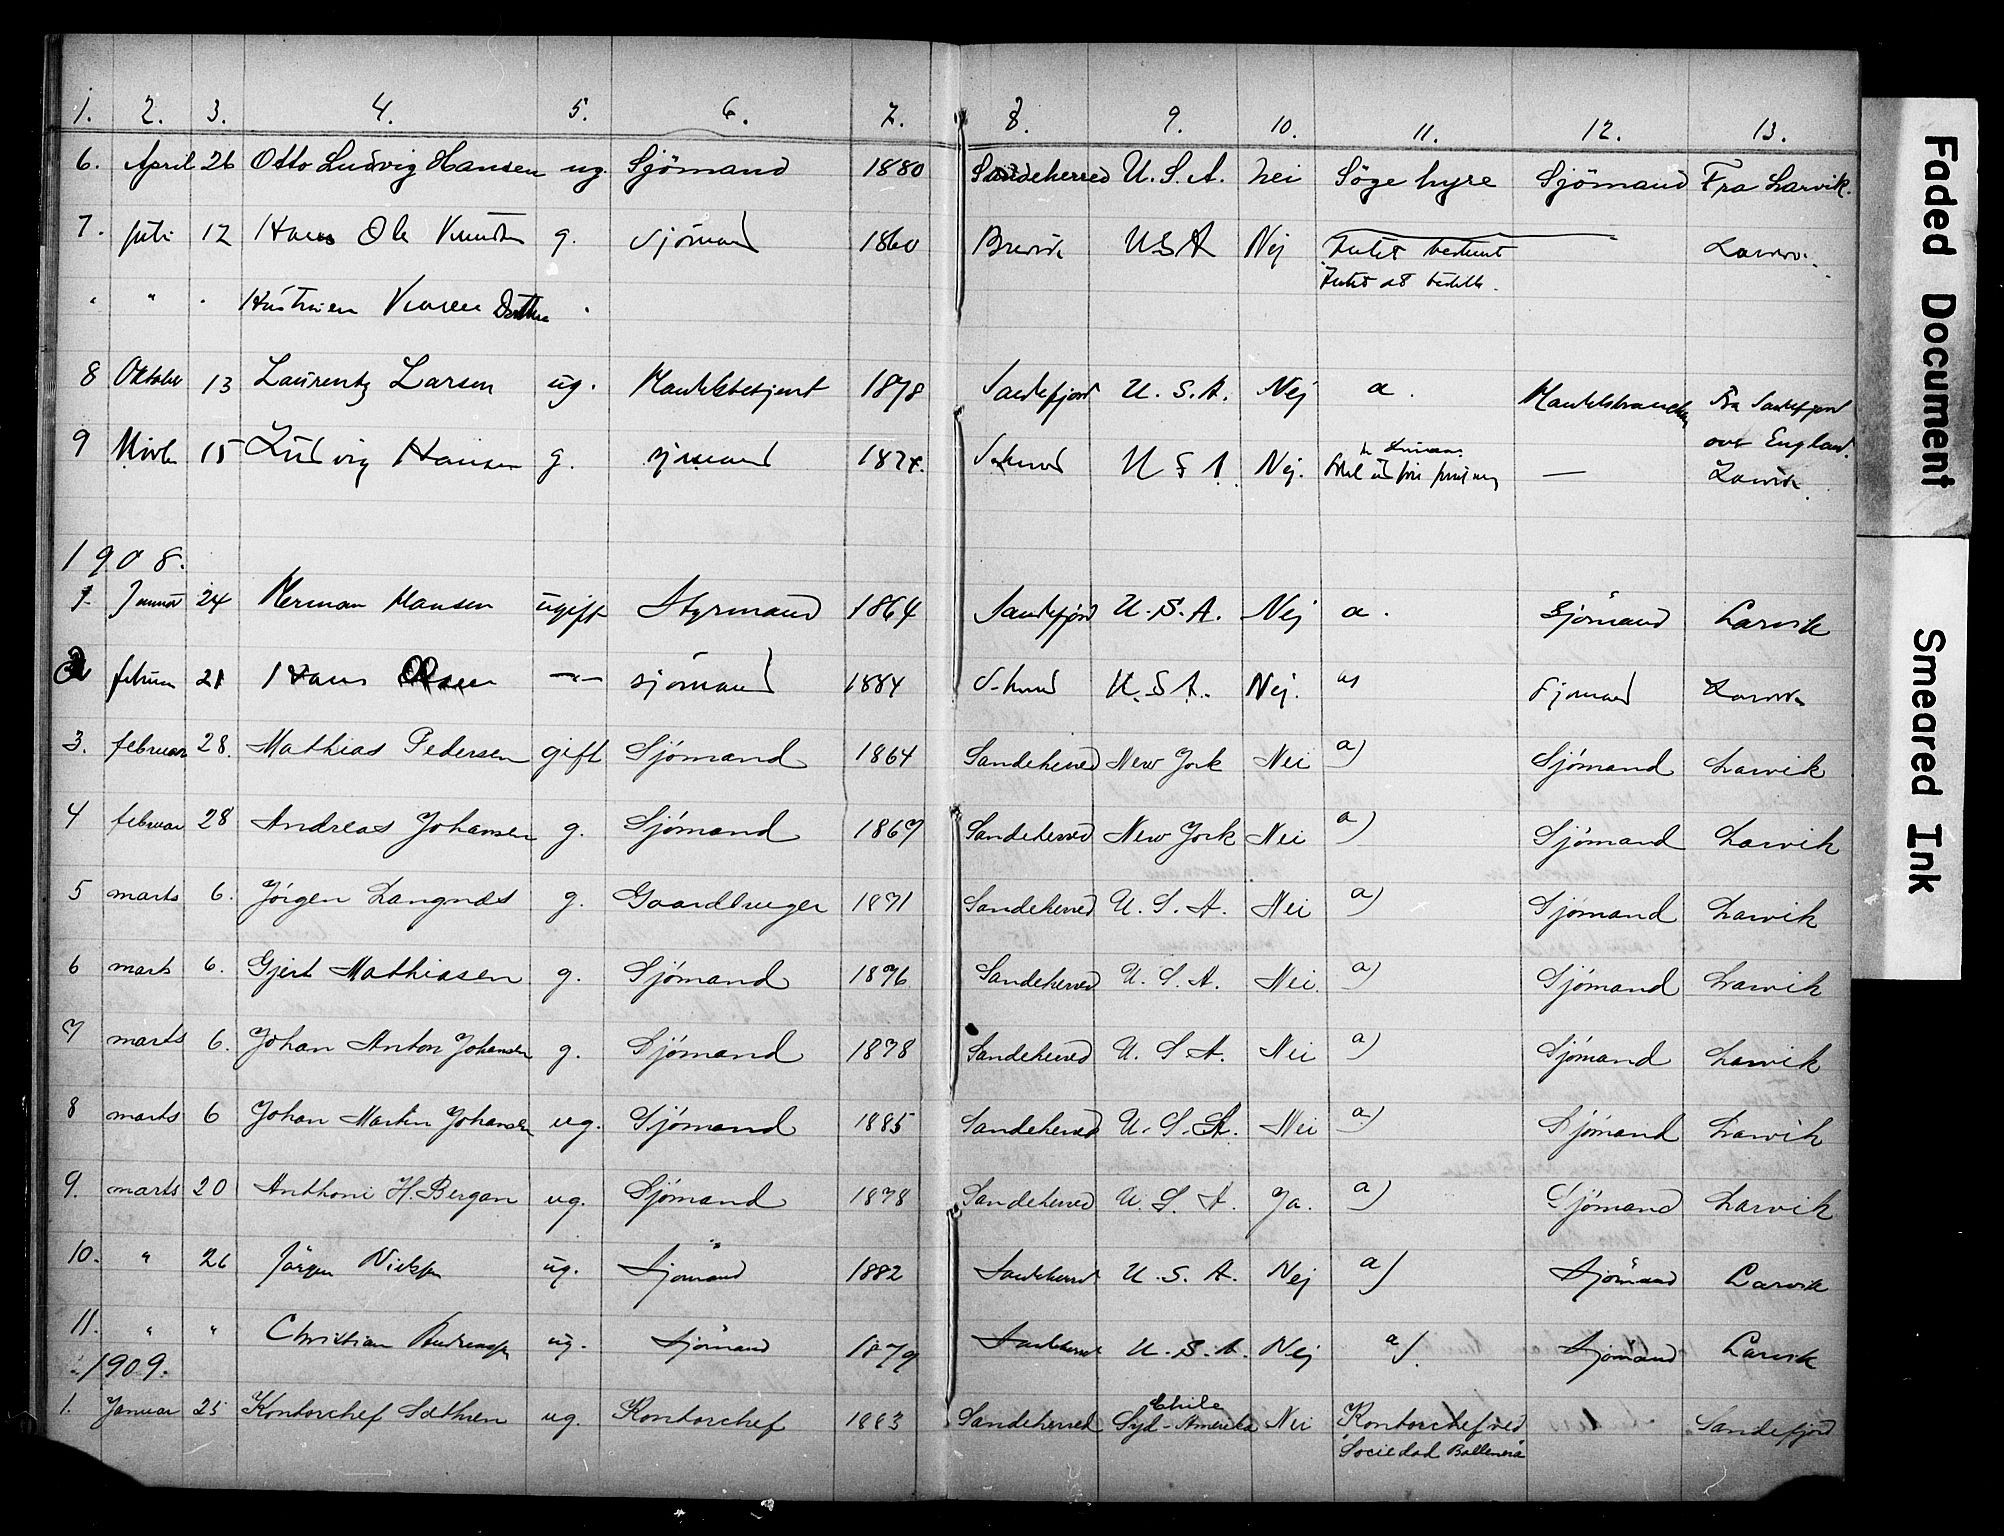 1. 2. 3. 4. 5. 6. 7. 8. 9. 10. 11. 12. 13.
6. April 26 Otto Ludvig Hansen ug. Sjömand 1880 Sandeherred U.S.A. nei Söge hyre Sjömand Fra Larvik.
7. juli 12 Hans Ole Knudsen g. Sjømand 1860 Brevik USA Nej Intet bestemt
" " " Hustruen Karen "
8 Oktober 13 Laurentz Larsen ug. Handelsbetjent 1878 Sandefjord U.S.A. Nej a. Handelsbranchen Fra Sandefjord
over England.
9 Novbr 15 Ludvig Hansen g. sjømand 1874. U S A Nej. — Larvik.
1908.
1. Januar 24 Herman Hansen ugift Styrmand 1864 Sandefjord U.S.A. Nej a. Sjömand Larvik
2 februar 21 Hans Olsen — sjømand 1884 U.S.A. Nej. a) Sjømand Larvik
3. februar 28. Mathias Pedersen gift Sjómand 1864 Sandeherred New York Nei a) Sjómand Larvik
4 februar 28 Andreas Johansen g. Sjómand 1867 Sandeherred New York Nei a) Sjómand Larvik
5 marts 6. Jórgen Langnes g. Gaardbruger 1871 Sandeherred U.S.A. Nei a) Sjómand Larvik
6 marts 6. Gjert Mathiasen g. Sjómand 1876 Sandeherred U.S.A. Nei. a) Sjómand Larvik
7 marts 6. Johan Anton Johansen g. Sjómand 1878 Sandeherred U.S.A. Nei a) Sjómand Larvik
8 marts 6 Johan Martin Johansen ug. Sjómand 1885 Sandeherred U.S.A. Nei a) Sjómand Larvik
9. marts 20 Anthoni H. Bergan ug. Sjómand 1878 Sandeherred U.S.A. Ja. a) Sjómand Larvik
10. " 26 Jörgen Nielsen ug. Sjömand 1882 Sandeherred U.S.A. Nej a) Sjömand Larvik
11. " " Christian Andreassen ug. Sjömand 1879 Sandeherred U.S.A. Nej a). Sjömand Larvik
1909.
1. Januar 25 Kontorchef Sæthren ug. Kontorchef 1883 Sandeherred Chile Syd-Amerika Nei Kontorchef ved Sandefjord
Sociedad Ballenera
Faded Document
Smeared Ink